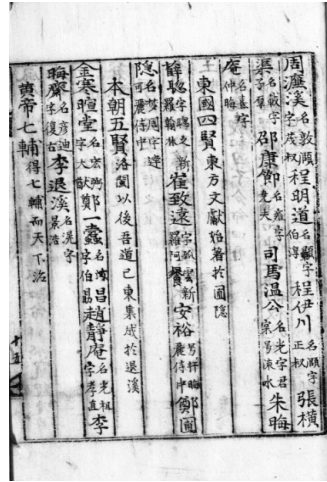 周濂溪名敦頤字茂叔程明道名顥字伯淳程伊川名頤字正叔張橫
渠名載字子厚邵康節名雍字堯夫司馬溫公名光字君實号涑水朱晦
庵名熹字仲晦
東國四賢東方文獻始著於圃隱
薛聰新羅翰林崔致遠字孤雲新羅阿飡安裕号晦軒麗侍中鄭圃
隱名夢周字達可麗侍中
本朝五賢洛閩以後吾道已東集成於退溪
金寒暄堂名宏弼字大猷鄭一蠹名汝昌字伯勗趙靜庵名光祖字孝直李
晦齋名彦迪字復古李退溪名滉字景浩
黃帝七輔得七輔而天下治
十五